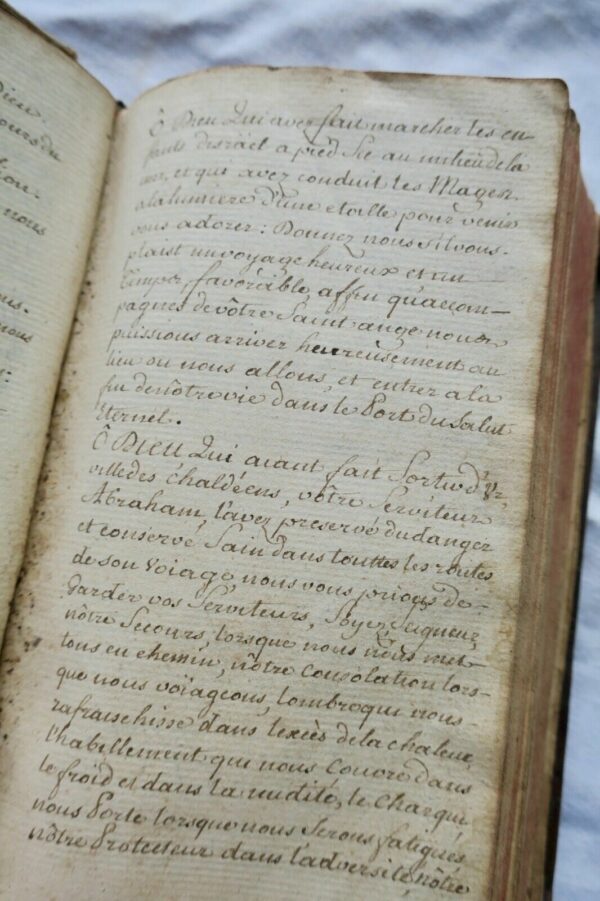 Dieu.
ours du
ion.
nous
us.
nous
Ô Dieu Qui avez fait marcher les en-
fants disräel a pied Sec au milieu de la
mer, et qui avez conduit les Mages.
a la lumiere d'une etoille pour venir
vous adorer: Donnez nous S'il vous.
plaist un voyage heureux et un
temps favorable, affin qu'accom-
pagnés de vôtre Saint ange nous
puissions arriver heureusement au
lieu ou nous allons, et entrer a la
fin de nôtre vie dans le Port du Salut
Eternel.
Ô Dieu Qui aiant fait Sortir d'Ur,
ville des Chaldéens, vôtre Serviteur
Abraham, l'avez preservé du danger
et conservé Sain dans touttes les routes
de son Voiage, nous vous prions de-
Garder vos Serviteurs, Soyez Seigneur,
nôtre Secours, lorsque nous nous met-
tons en chemin, nôtre Consolation lors-
que nous voïageons, lombre qui nous
rafraischisse dans lexcès de la chaleur,
l'habillement qui nous Couvre dans
le froid et dans la nudité, le Char qui
nous Porte lorsque nous Serons fatigués
nôtre Protecteur dans l'adversité, nôtre